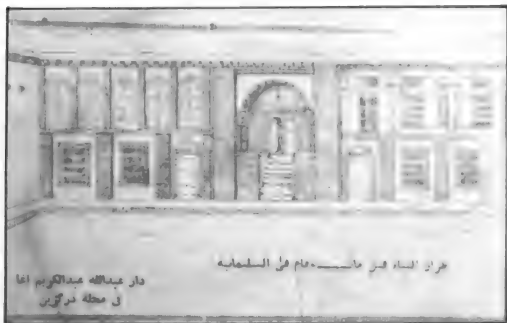 طراز البناء قبل مائـــــة عام في السليمانية
دار عبدالله عبدالكريم اغا
في محلة دركزين